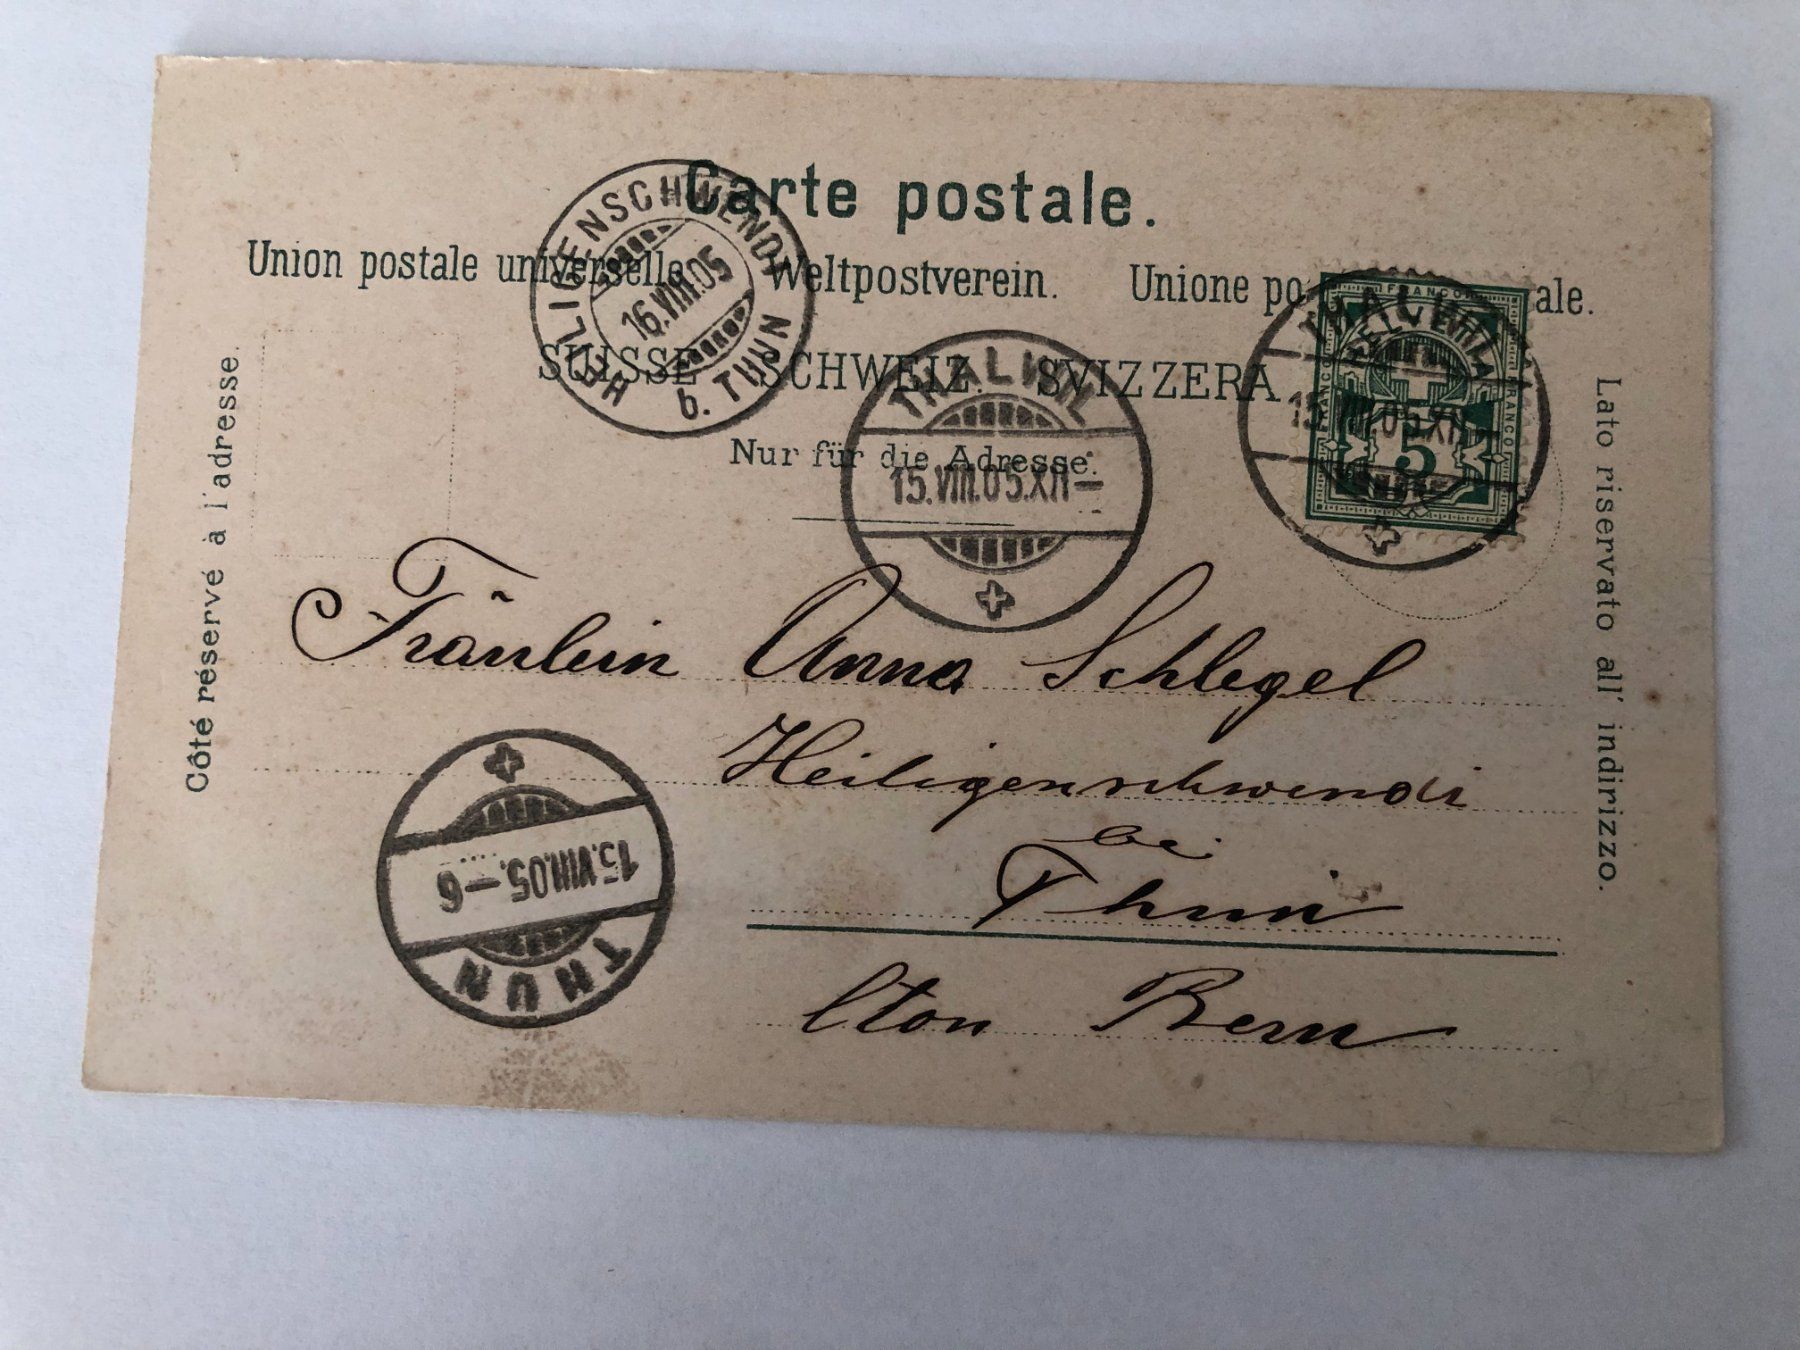 Carte postale.
Union postale universelle. Weltpostverein. Unione po ale.
SUISSE. SCHWEIZ. SVIZZERA.
Nur für die Adresse.
Côté réservé à l'adresse.
Lato riservato all' indirizzo.
HEILIGENSCHWENDI
16.VIII.05
b. THUN
THALWIL
15.VIII.05.XII–
THALWIL
15.VIII.05.XII
FRANCO
FRANCO
FRANCO
HELVETIA
5
Fräulein Anna Schlegel
Heiligenschwendi
bei
Thun
Cton Bern
15.VIII.05.–6
THUN